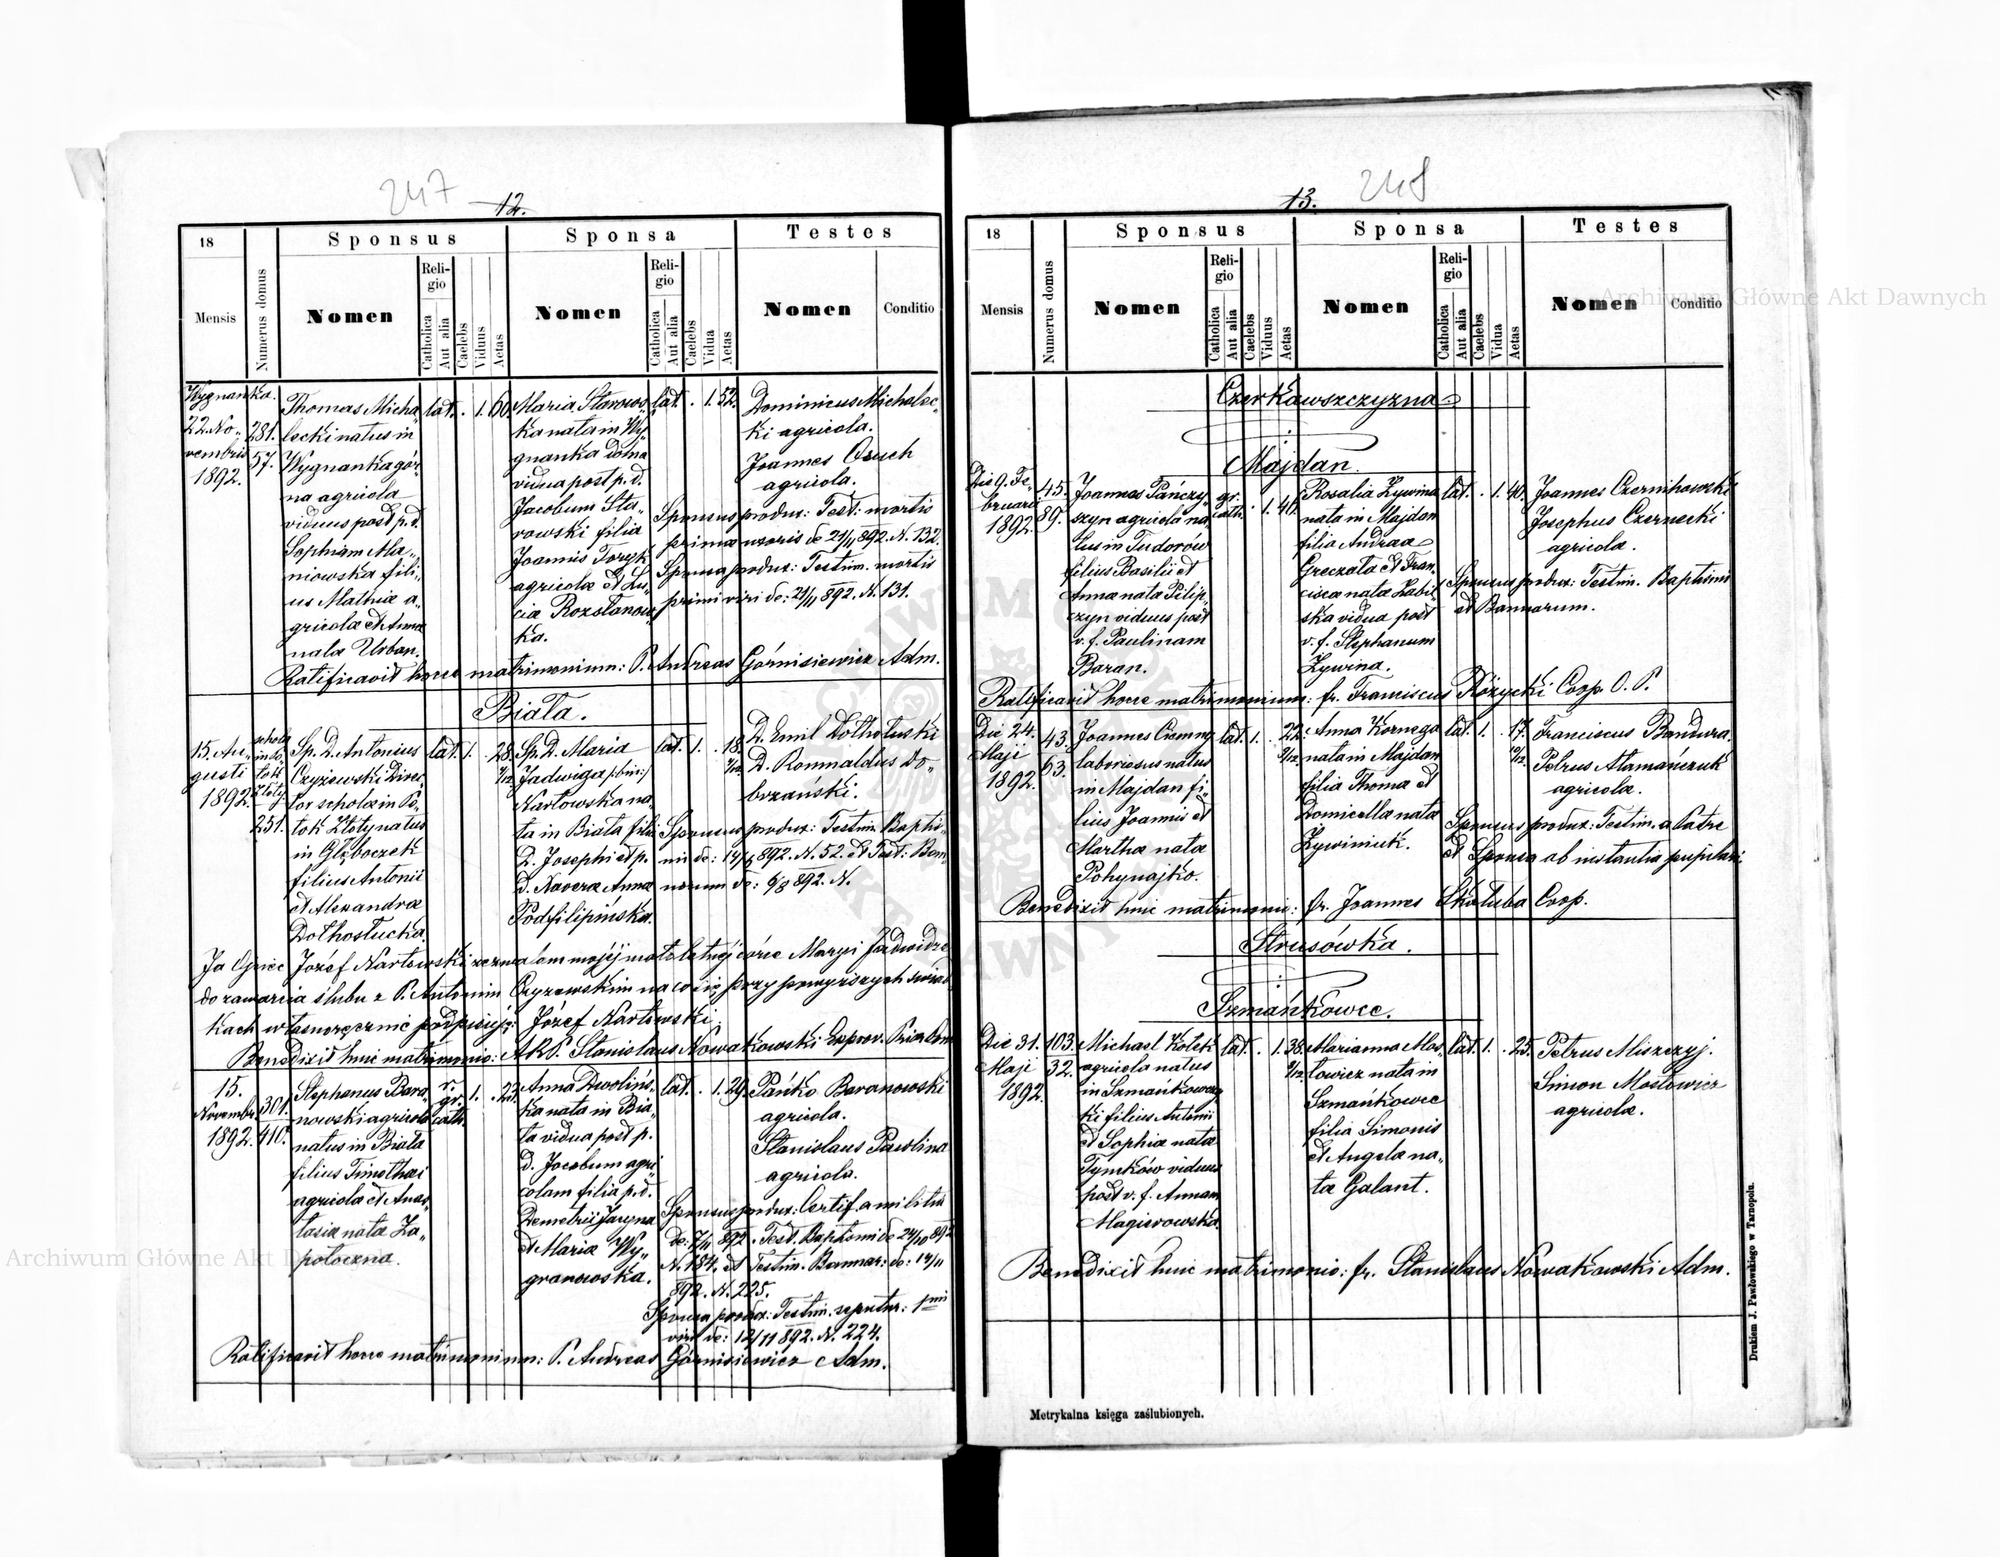 247
12.
18
Sponsus
Sponsa
Testes
Mensis
Numerus domus
Nomen
Religio
Catholica
Aut alia
Caelebs
Viduus
Aetas
Nomen
Religio
Catholica
Aut alia
Caelebs
Vidua
Aetas
Nomen
Conditio
Wygnanka.
22. No-
vembris
1892.
281.
57.
Thomas Micha-
lecki natus in
Wygnanka gór-
na agricola
viduus post p. d.
Sophiam Ma-
niowska fili-
us Mathiæ a-
gricolæ et Anna
nata Urban.
lat. . 1. 60.
Maria Starows-
ka nata in Wy-
gnanka dolna
vidua post p. d.
Jacobum Sta-
rowski filia
Joannis Toryk
agricolæ et Lu-
ciæ Rozstanows-
ka.
lat. . 1. 52.
Dominicus Michalec-
ki agricola.
Joannes Osuch
agricola.
Sponsus produx: Test: mortis
primæ uxoris de 21/11 892. N. 132.
Sponsa produx: Testim. mortis
primi viri de: 21/11 892. N. 131.
Ratificavit hocce matrimonium: P. Andreas Górnisiewicz Adm.
Biała.
15. Au-
gusti
1892.
schola
in Po-
tok
Złoty
251.
Sp. D. Antonius
Czyżewski Direc-
tor scholæ in Po-
tok Złoty natus
in Głęboczek
filius Antonii
et Alexandra
Dołhostucka.
lat. 1. . 28.
Sp. D. Maria
Jadwiga
Nartowska na-
ta in Biała filia
D. Josephi et p.
d. Xavera Anna
Podfilipińska.
lat. 1. . 18.
D. Emil Dołhotuski
D. Romualdus Do-
brzański.
Sponsus produx: Testim. Baptis-
mi de: 14/5 892. N. 52. et Test: Ban-
norum de: 6/8 892. N.
Ja Ojciec Józef Nartowski zezwalam mojej małoletniej córce Maryi Jadwidze
do zawarcia ślubu z P. Antonim Czyżewskim na co się przy powyższych świad-
kach własnoręcznie podpisuję: Józef Nartowski.
Benedixit huic matrimonio: ARP. Stanislaus Nowakowski Exprov. Prior Conv
15.
Novembr.
1892.
301.
410.
Stephanus Bara-
nowski agricola
natus in Biała
filius Timothei
agricola et Anas-
tasia nata Za-
potoczna.
r.
gr.
cath.
1. . 23.
Anna Dwolińs-
ka nata in Bia-
ła vidua post p.
d. Jacobum agri-
colam filia p. d.
Demetrii Jaryna
et Maria Wy-
granowska.
lat. . 1. 29.
Pańko Baranowski
agricola.
Stanislaus Pawlina
agricola.
Sponsus produx: Certif. a militia
de: 7/11 892. Test. Baptismi de 24/10 892
N. 184. et Testim. Bannor: de: 14/11
892. N. 225.
Sponsa produx: Testim. sepultur: 1mi
viri de: 12/11 892. N. 224.
Ratificavit hocce matrimonium: P. Andreas Górnisiewicz Adm.
13.
248
18
Sponsus
Sponsa
Testes
Mensis
Numerus domus
Nomen
Religio
Catholica
Aut alia
Caelebs
Viduus
Aetas
Nomen
Religio
Catholica
Aut alia
Caelebs
Vidua
Aetas
Nomen
Conditio
Czerkawszczyzna
Majdan.
Die 9. Fe-
bruarii
1892.
45.
89.
Joannes Pańczy-
szyn agricola na-
tus in Tudorów
filius Basilii et
Anna nata Pilip-
czyn viduus post
v. f. Paulinam
Baran.
gr.
cath.
. 1. 46.
Rosalia Żywina
nata in Majdan
filia Andreæ
Greczała et Fran-
cisca nata Babil-
ska vidua post
v. f. Stephanum
Żywina.
lat. . 1. 40.
Joannes Czernihowski
Josephus Czernecki
agricola.
Sponsus produx: Testim. Baptismi
et Bannorum.
Ratificavit hocce matrimonium: fr. Franciscus Różycki Coop. O. P.
Die 24.
Maji
1892.
43.
63.
Joannes Ciemny
laboriosus natus
in Majdan fi-
lius Joannis et
Martha nata
Pohynajko.
lat. 1. . 22.
Anna Kornega
nata in Majdan
filia Thoma et
Domicella nata
Żywiniuk.
lat. 1. . 17.
Franciscus Bandura.
Petrus Atamańczuk
agricola.
Sponsus produx: Testim. a Patre
et Sponsa ab instantia pupilari
Benedixit huic matrimonio: fr. Joannes Skałuba Coop.
Strusówka.
Szmańkowce.
Die 31.
Maji
1892.
103.
32.
Michael Kołek
agricola natus
in Szmańkowczy-
ki filius Antonii
et Sophia nata
Tymków viduus
post v. f. Annam
Magierowska
lat. . 1. 38.
Marianna Mos-
towicz nata in
Szmańkowce
filia Simonis
et Angela na-
ta Galant.
lat. 1. . 25.
Petrus Miszczyj.
Simon Mostowicz
agricolæ.
Benedixit huic matrimonio: fr. Stanislaus Nowakowski Adm.
Metrykalna księga zaślubionych.
Drukiem J. Pawłowskiego w Tarnopolu.
Archiwum Główne Akt Dawnych
Archiwum Główne Akt Dawnych